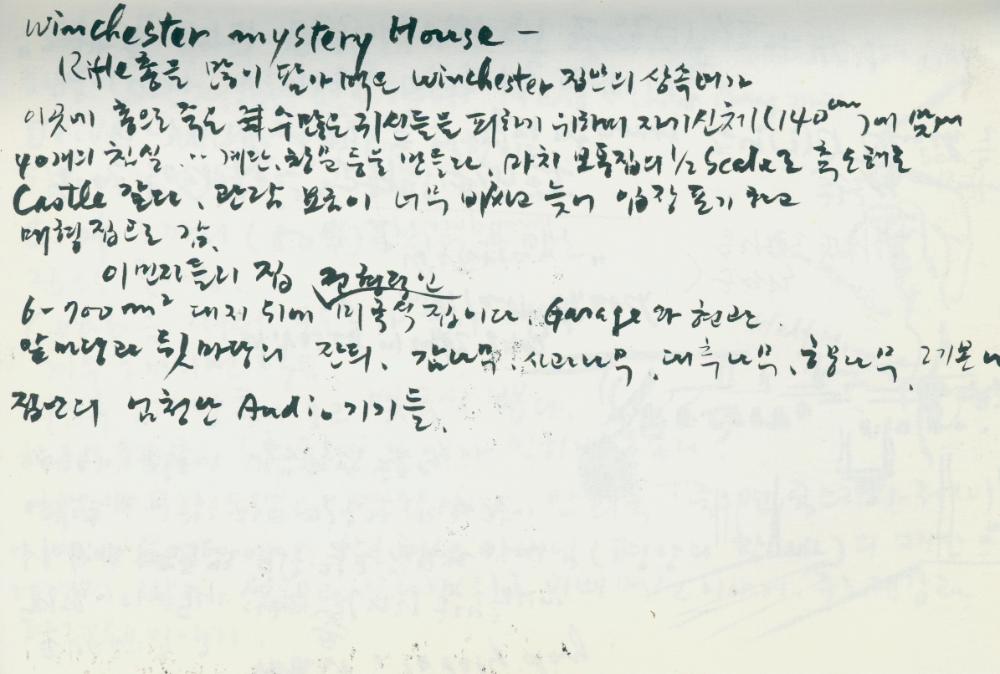 Winchester mystery House –
Rifle 총을 많이 팔아먹은 Winchester 집안의 상속녀가
이곳에 총으로 죽은 수많은 귀신들을 피하기 위하여 자기신체(140cm)에 맞게
40개의 침실 ·· 계단, 창문 등을 만들다. 마치 보통집의 1/2 Scale로 축소해로
Castle 같다. 관람 보존이 너무 비싸고 늦어 입장 포기 하고
매형집으로 감.
이민자들의 집 전형적인
6-700m² 대지 위에 미국식 집이다. Garage와 현관
앞마당과 뒷마당의 잔듸, 감나무, 사과나무, 대추나무, 향나무, 그리고
집안의 엄청난 Audio 기기들.